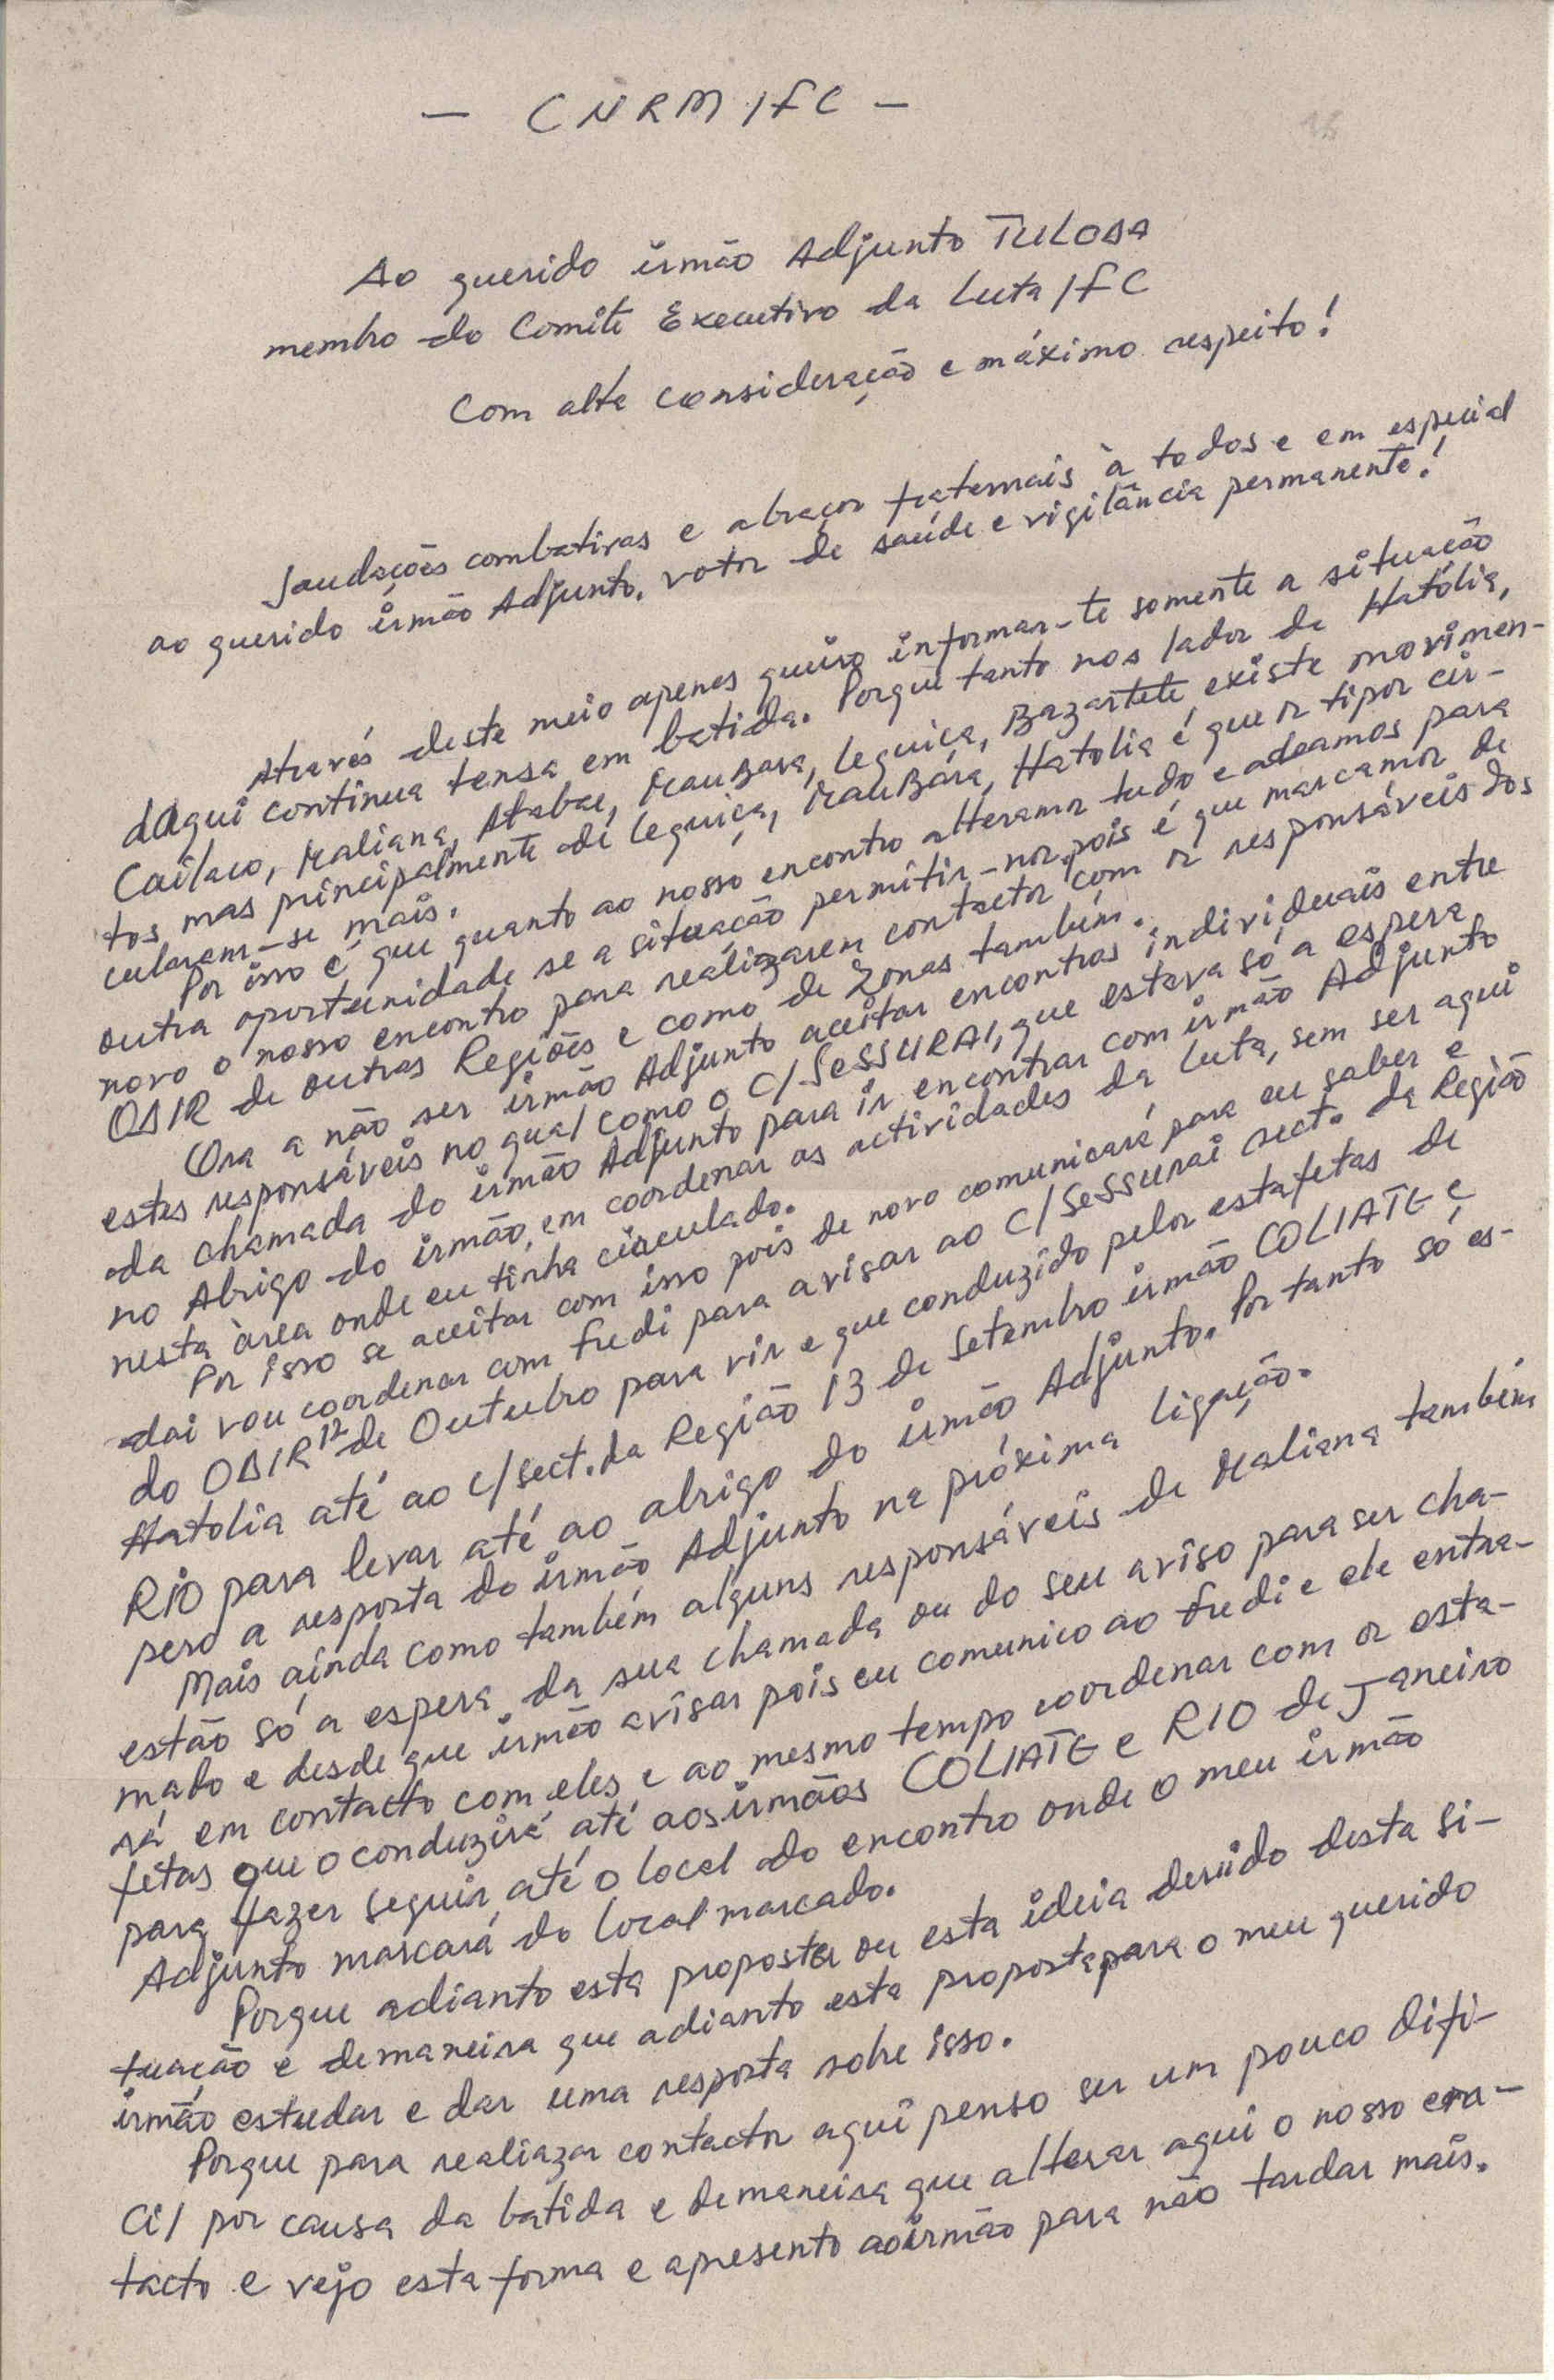 - CNRM / FC -
Ao querido irmão Adjunto TULODA
membro do Comité Executivo da Luta / FC
Com alta consideração e máximo respeito!
Saudações combativas e abraços fraternais à todos e em especial
ao querido irmão Adjunto, votos de saúde e vigilância permanente!
Através deste meio apenas quero informar-te somente a situação
daqui continua tensa em batida. Porque tanto nos lados de Hatólia,
Cailaco, Maliana, Atabae, MauBara, Leguiça, Bazartete existe movimen-
tos mas principalmente de Leguiça, MauBára, Hatolia é que os tipos cir-
cularam-se mais.
Por isso é que quanto ao nosso encontro alteramos tudo e adeamos para
outra oportunidade se a situação permitir-nos, pois é que marcamos de
novo o nosso encontro para realizarem contactos com os responsáveis dos
ODIR de outras Regiões e como de Zonas também.
Ora a não ser irmão Adjunto aceitar encontros individuais entre
estes responsáveis no qual como o C/SeSSURAI, que estava só a espera
da chamada do irmão Adjunto para ir encontrar com irmão Adjunto
no Abrigo do irmão, em coordenar as actividades da Luta, sem ser aqui
nesta àrea onde eu tinha circulado.
Por isso se aceitar com isso pois de novo comunicará para eu saber e
dai vou coordenar com Fredi para avisar ao C/SeSSurai sect. da Região
do ODIR 12 de Outubro para vir e que conduzido pelos estafetas de
Hatolia até ao c/sect. da Região 13 de Setembro irmão COLIATE e
RIO para levar até ao abrigo do irmão Adjunto. Por tanto só es-
pero a resposta do irmão Adjunto na próxima ligação.
Mais ainda como também alguns responsáveis de Maliana também
estão só a espera da sua chamada ou do seu aviso para ser cha-
mado e desde que irmão avisar pois eu comunico ao Fredi e ele entra-
rá em contacto com eles e ao mesmo tempo coordenar com os esta-
fetas que o conduzirá até aos irmãos COLIATE e RIO de Janeiro
para fazer seguir até o local do encontro onde o meu irmão
Adjunto marcará do local marcado.
Porque adianto esta proposta ou esta ideia devido desta si-
tuação e demaneira que adianto esta proposta para o meu querido
irmão estudar e dar uma resposta sobre isso.
Porque para realiazar contactos aqui penso ser um pouco difi-
cil por causa da batida e demaneira que alterar aqui o nosso con-
tacto e vejo esta forma e apresento ao irmão para não tardar mais.